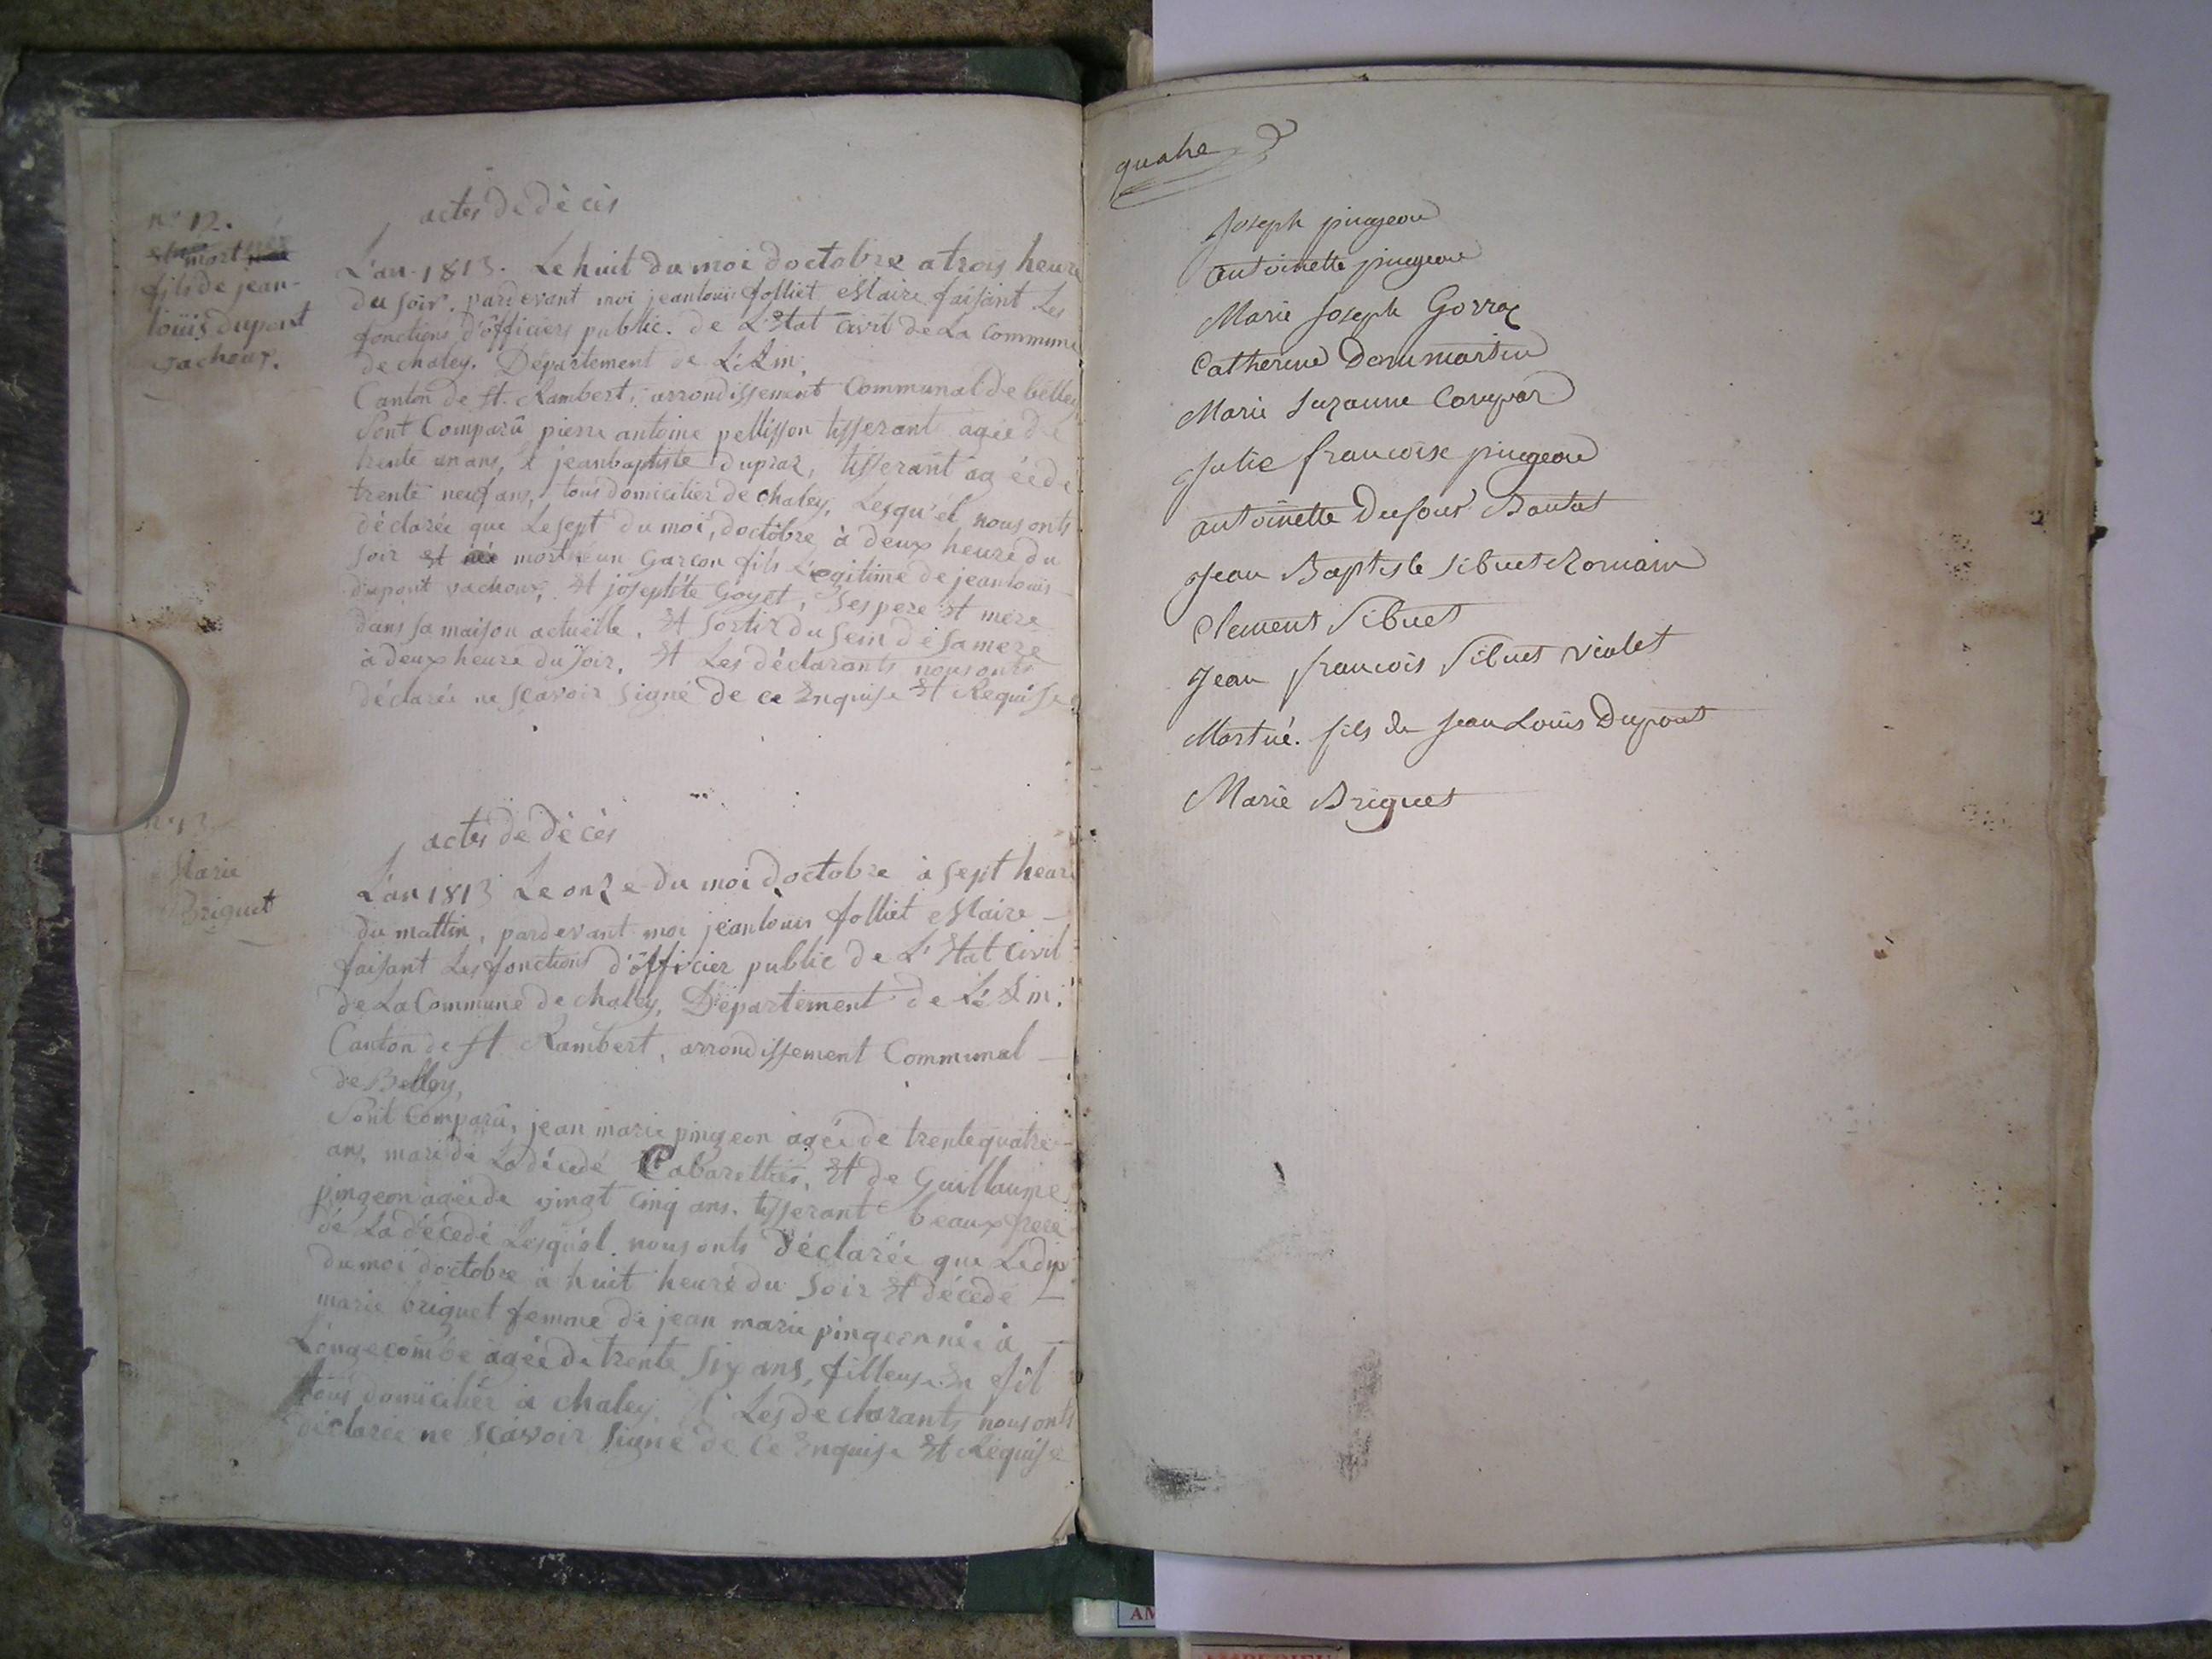 n° 12.
est mort née
fils de jean-
louis dupont
vachoux.
actes de dècès
L'an 1813. Le huit du moi doctobre a trois heure
du soir. pardevant moi jeanlouis folliet Maire faisant Les
fonctions d'òfficiers public. de L'Etat Civil de La Commune
de chaley. Département de L'Ain,
Canton de st. Rambert, arrondissement Communal de belley
Sont Comparû pierre antoine pellisson tisserant agée de
trente un ans, & jeanbaptiste dupraz, tisserant agée de
trente neuf ans, tous domicilier de chaley, Lesqu'él nous onts
déclarée que Le sept du moi, doctobre à deux heure du
soir est née mort né un Garcon fils Légitime de jeanlouis
dupont vachoux, Et joseptéte Goyet, Ses pere Et mere
dans sa maison actuëlle, Et sortir du sein de sa mere
à deux heure du soir, Et Les déclarants nous onts
déclarée ne scavoir signé de ce Enquise Et Requise
n° 13
Marie
Briguet
actes de dècès
L'an 1813 Le onze du moi doctobre à sept heure
du mattin, pardevant moi jeanlouis folliet Maire
faisant Les fonctions d'òfficier public de L'Etat Civil
de La Commune de chaley, Département de L'Ain,
Canton de st Rambert, arrondissement Communal
de Belley,
Sont Comparû, jean marie pingeon agée de trente quatre
ans, mari de La décedé Cabarettier, Et de Guillaume
pingeon agée de vingt cinq ans, tisserant beaux frere
de La décedé Lesquél nous onts déclarée que Le dix
du moi doctobre à huit heure du soir Et décedé
marie briguet femme de jean marie pingeon née à
Longecombe agée de trente six ans, filleuse en fil
tous domicilier à chaley, Et Les declarants nous onts
déclarée ne scavoir signé de Ce Enquise Et Réquise
quatre
Joseph pingeon
antoinette pingeon
Marie Joseph Gorraz
Catherine Denumartin
Marie Suzanne
Julie francoise pingeon
antoinette Dufour
Jean Baptiste Sibuet Romain
Clement Sibuet
Jean francois Sibuet violet
Mort né. fils de Jean Louis Dupont
Marie Briguet
AM